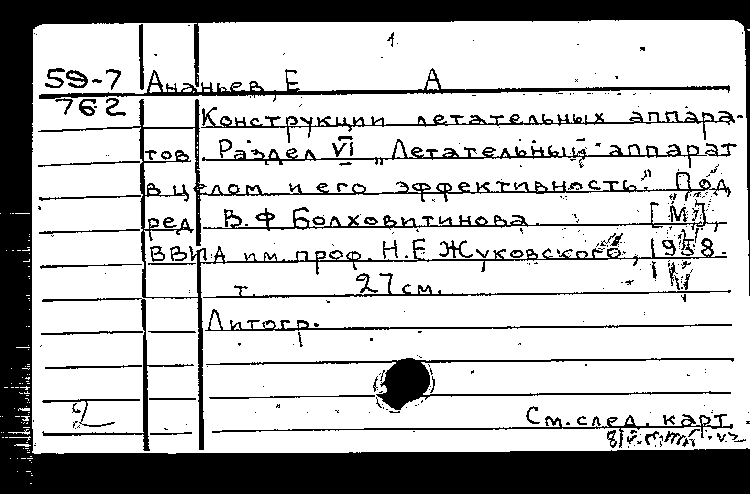 1
59-7 Ананьев, Е А
762 Конструкции летательных аппара-
тов. Раздел VI „Летательный аппарат
в целом и его эффективность." Под
ред В. Ф Болховитинова. [М],
ВВИА им. проф. Н.Е Жуковского, 1958.
т. 27 см.
Литогр.
2 См. след. карт.